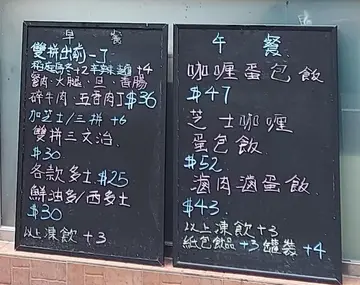 早 餐
雙拼出前一丁
+2 辣麵 +4
餐肉·火腿·旦·香腸
碎牛肉·五香肉丁 $36
加芝士/三拼 +6
雙拼三文治
$30
各款多士 $25
鮮油多/西多士
$30
以上凍飲 +3
午 餐
咖喱蛋包飯
$47
芝士咖喱
蛋包飯
$52
滷肉滷蛋飯
$43
以上凍飲 +3
紙包飲品 +3 罐裝 +4